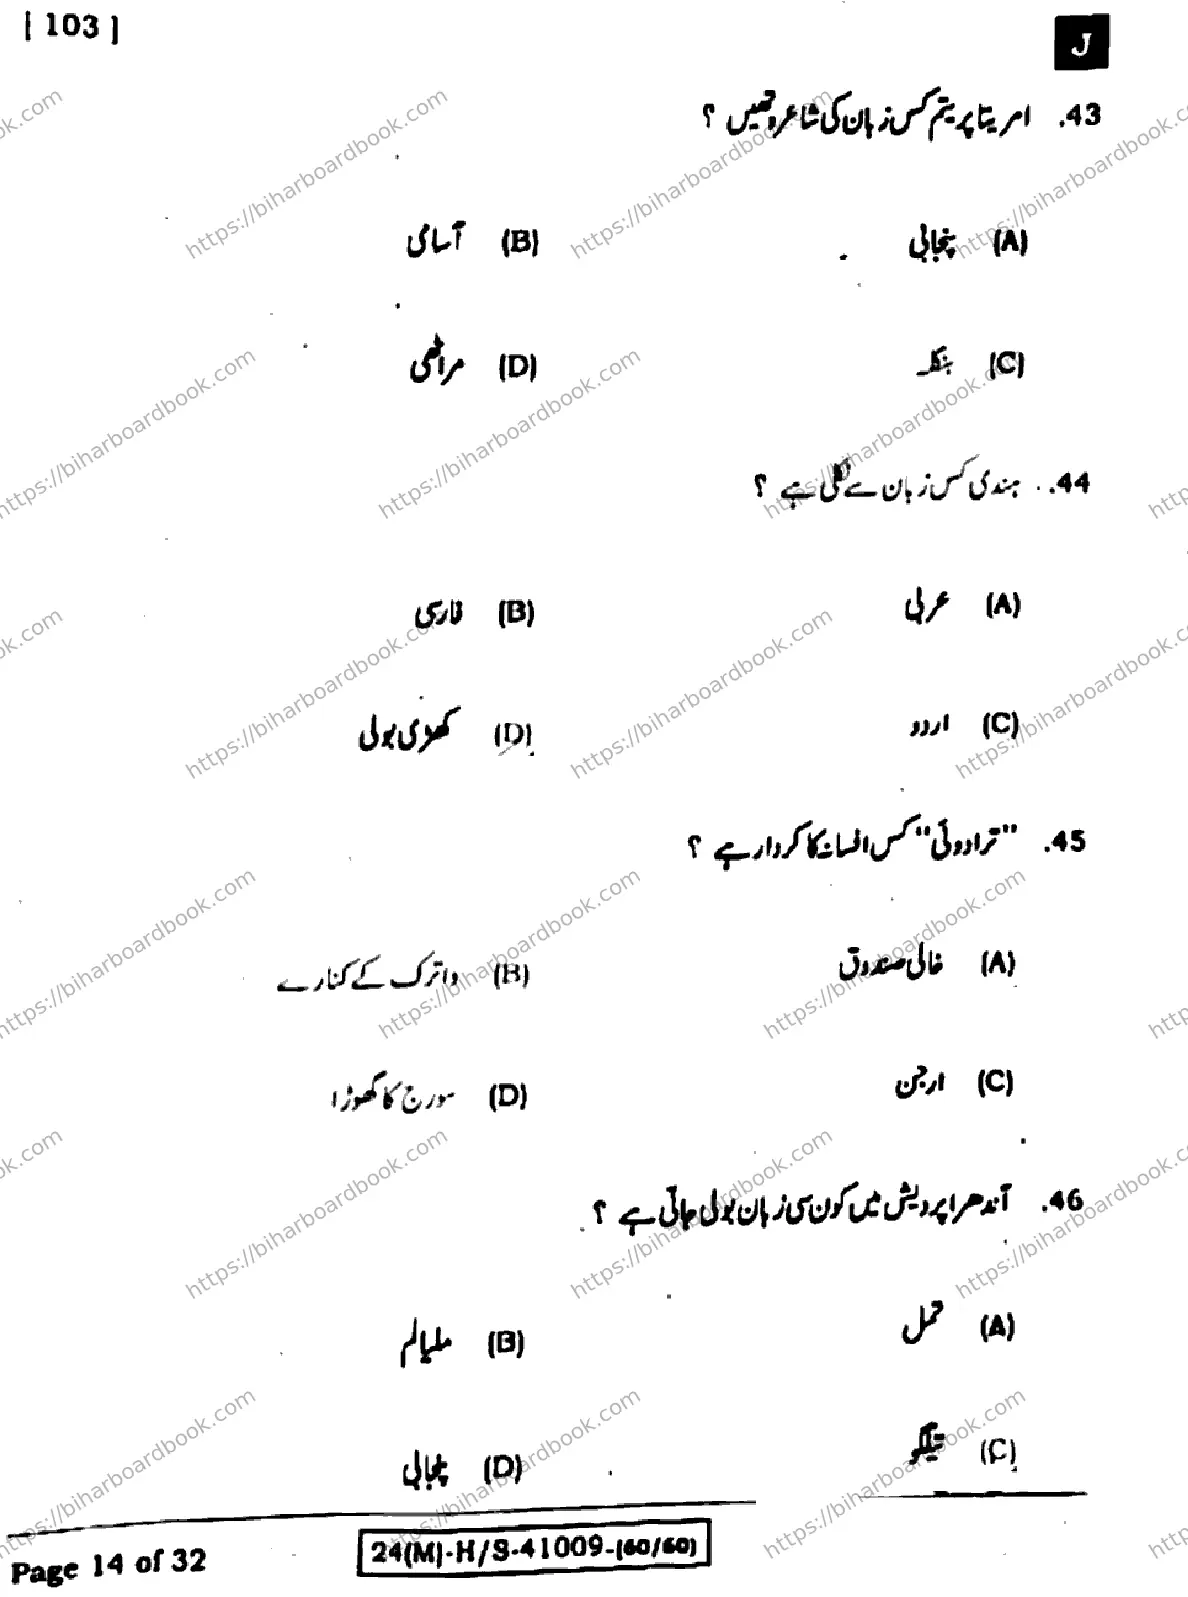 [ 103 ]
J
43. امریتا پریتم کس زبان کی شاعرہ تھیں ؟
(A) پنجابی (B) آسامی
(C) بنگلہ (D) مراٹھی
44. ہندی کس زبان سے نکلی ہے ؟
(A) عربی (B) فارسی
(C) اردو (D) کھڑی بولی
45. "ترادوئی" کس افسانہ کا کردار ہے ؟
(A) خالی صندوق (B) واترک کے کنارے
(C) ارجن (D) سورج کا گھوڑا
46. آندھرا پردیش میں کون سی زبان بولی جاتی ہے ؟
(A) تمل (B) ملیالم
(C) تیلگو (D) پنجابی
Page 14 of 32
24(M)-H/S-41009-(60/60)
https://biharboardbook.com